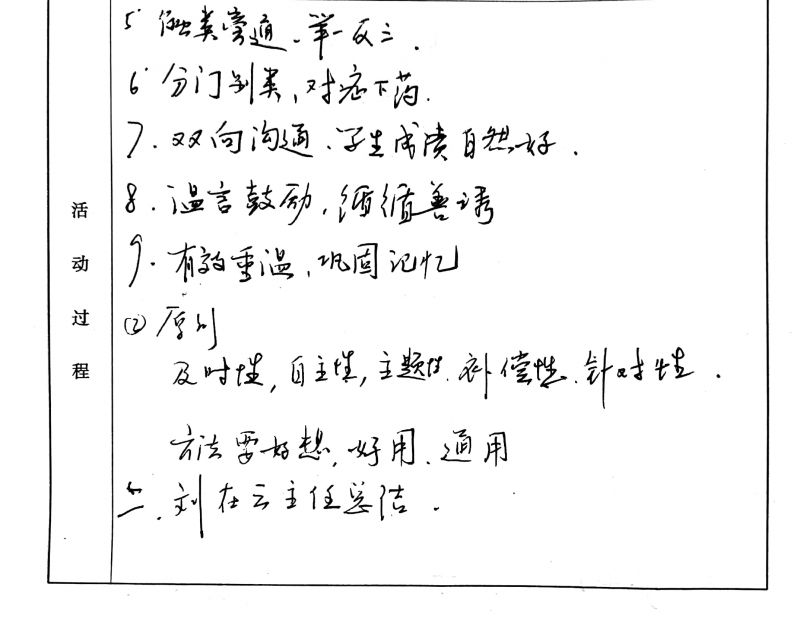 活动过程
5. 触类旁通、举一反三.
6. 分门别类,对症下药.
7. 双向沟通、学生成绩自然好.
8. 温言鼓励,循循善诱
9. 有效重温、巩固记忆
② 原则
及时性,自主性,主题性.补偿性.针对性.
方法要好想,好用、通用
三、刘在云主任总结.